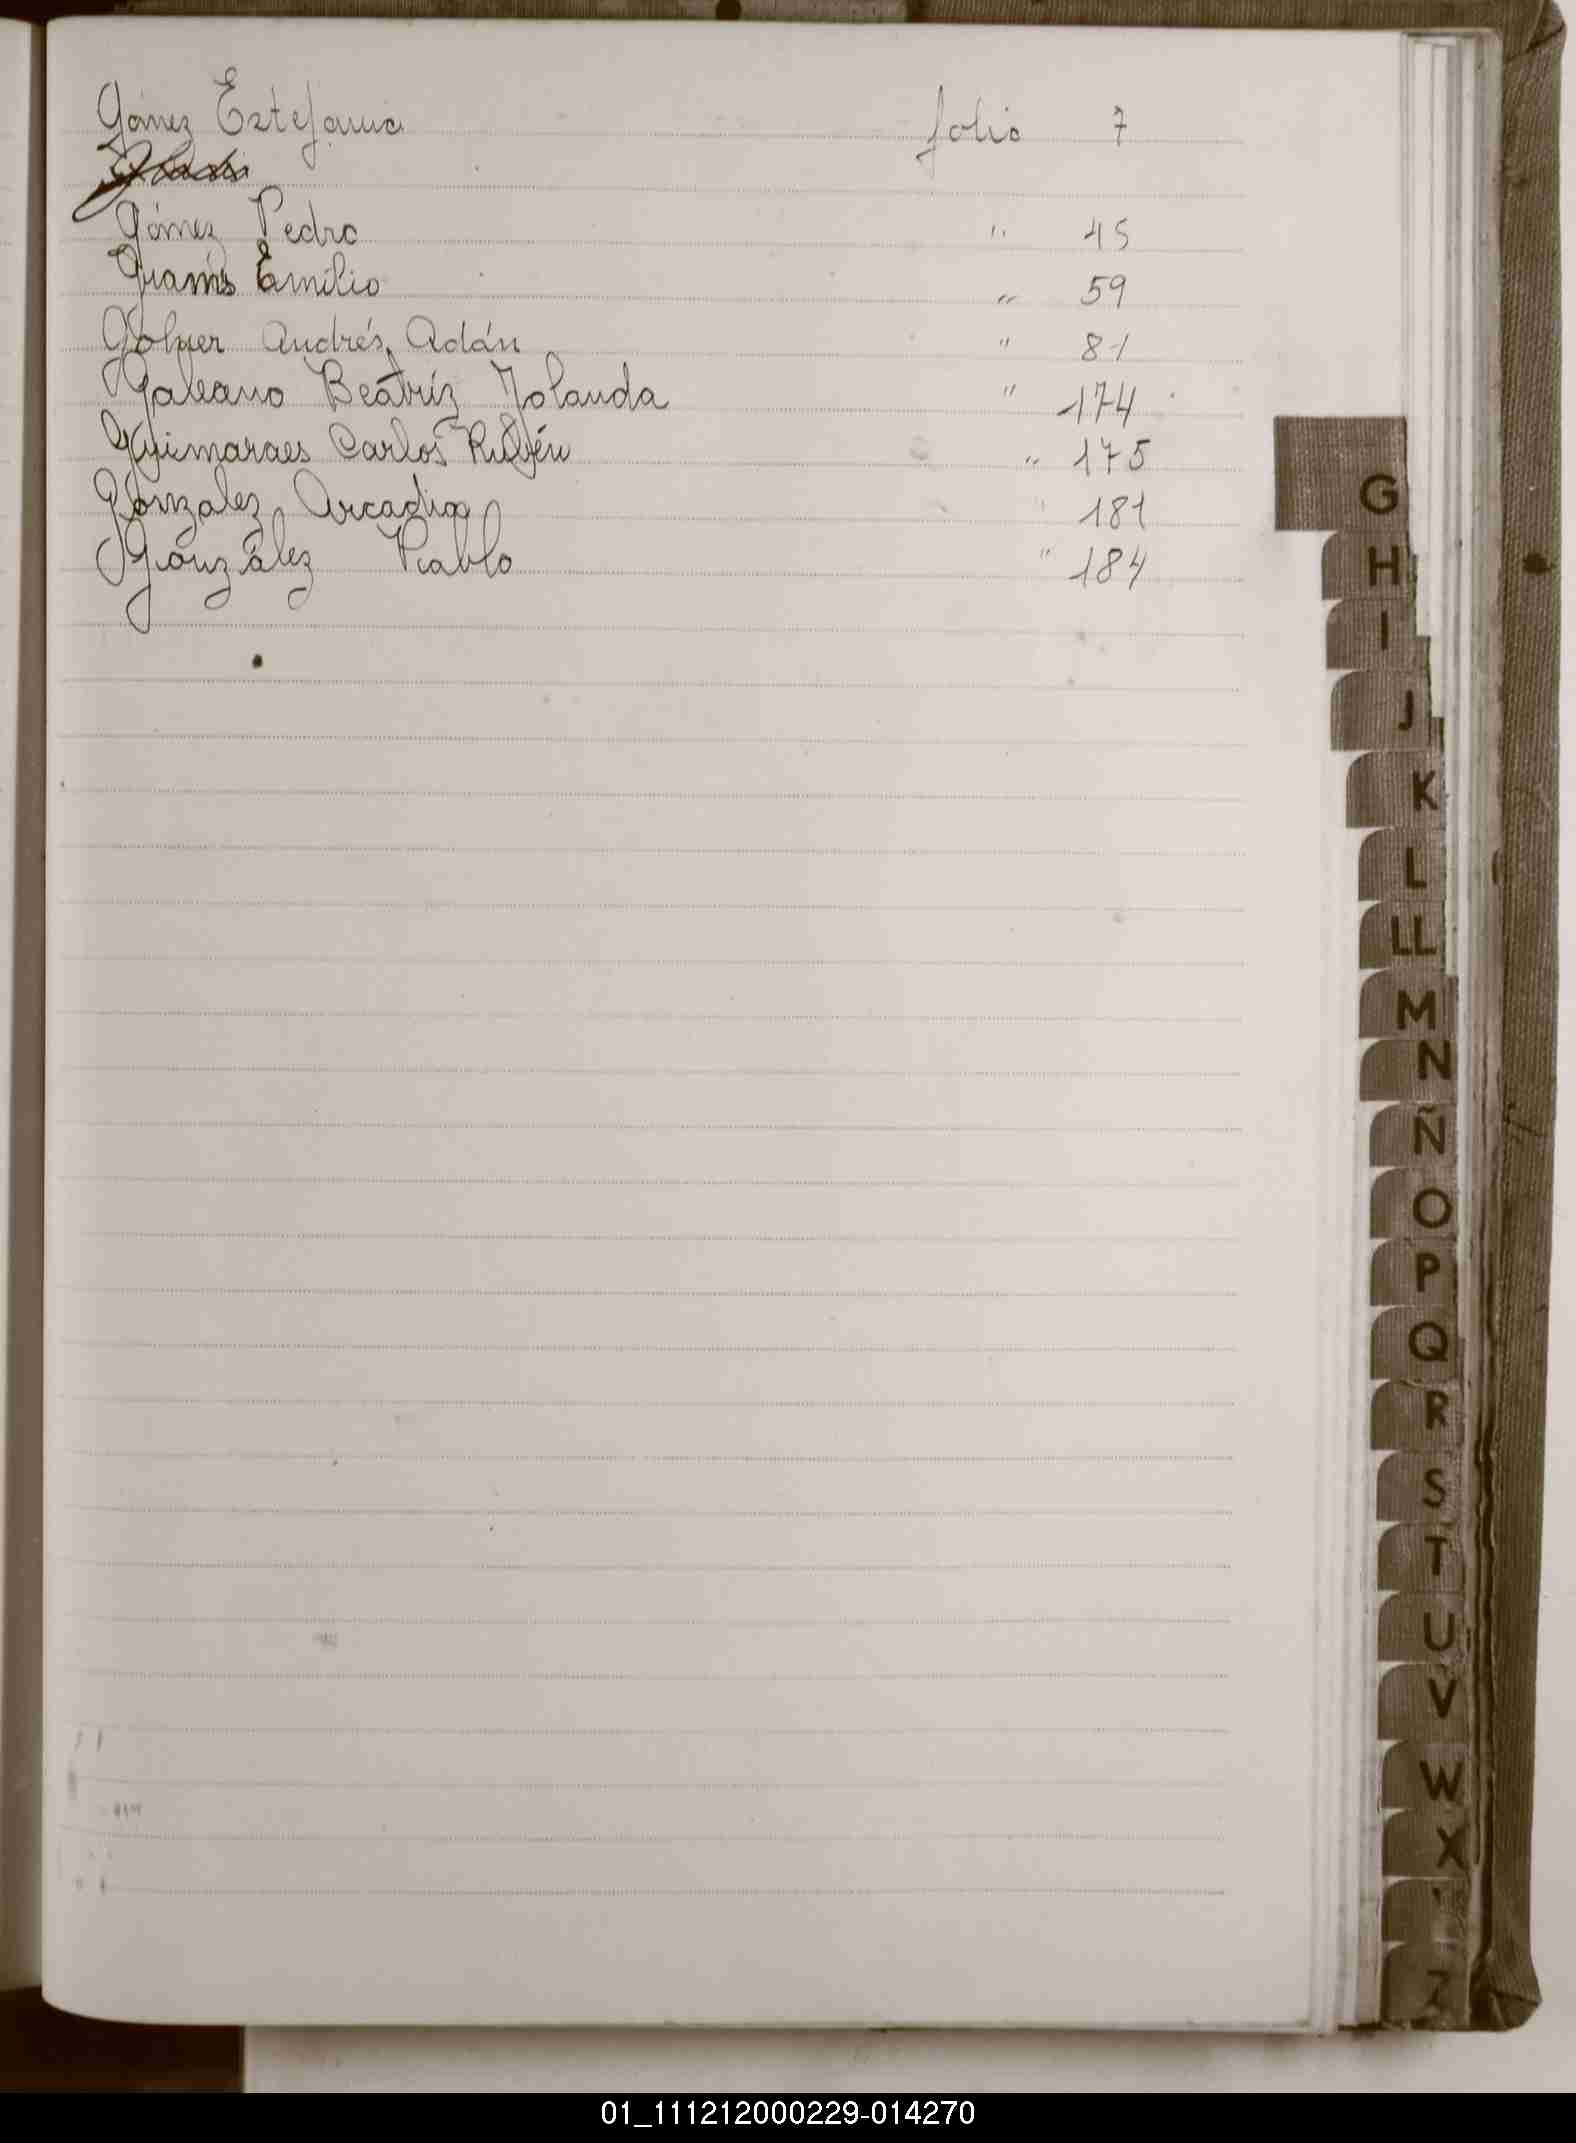 Gómez Estefania folio 7
Gómez Pedro " 45
Grams Emilio " 59
Andrés Adán " 81
Galeano Beatríz Yolanda " 174
Guimaraes Carlos Rubén " 175
Gonzalez Arcadio " 181
González Pablo " 184
G
H
I
J
K
L
LL
M
N
Ñ
O
P
Q
R
S
T
U
V
W
X
Z
01_111212000229-014270